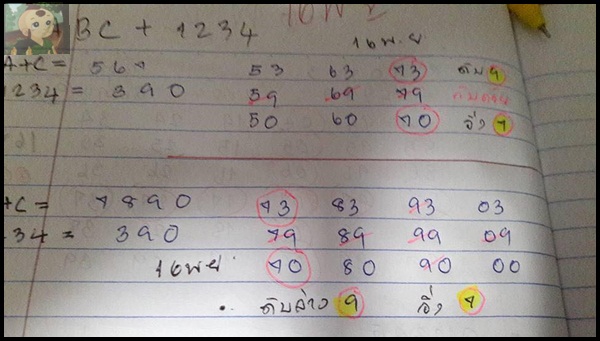 ABC + 1234
16 พ.ย
A+C = 567 53 63 73 ดับ 9
1234 = 390 59 69 79
50 60 70 วิ่ง 7
+C = 7890 73 83 93 03
234 = 390 79 89 99 09
16 พย 70 80 90 00
ดับล่าง 9 วิ่ง 7